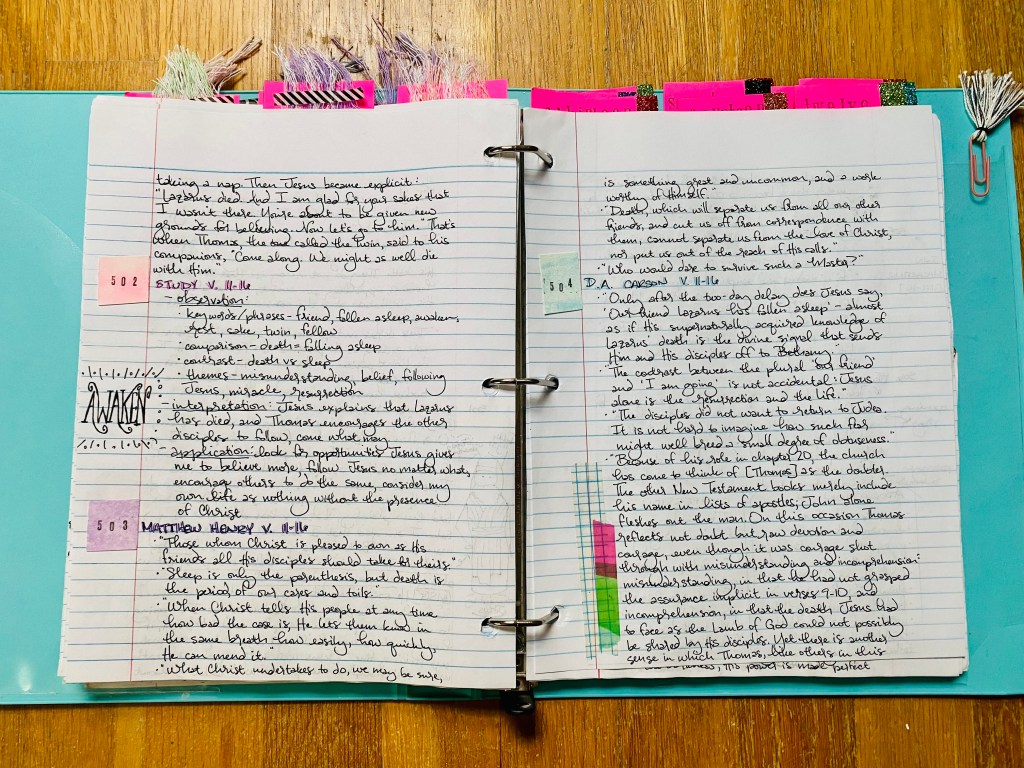 taking a nap. Then Jesus became explicit:
"Lazarus died. And I am glad for your sakes that
I wasn't there. You're about to be given new
grounds for believing. Now let's go to him." That's
when Thomas, the one called the twin, said to his
companions, "Come along. We might as well die
with Him."
502
STUDY V. 11-16
- observation:
• keywords/phrases - friend, fallen asleep, awaken,
rest, sake, twin, fellow
• comparison - death = falling asleep
• contrast - death vs sleep
• themes - misunderstanding, belief, following
Jesus, miracle, resurrection
AWAKEN
- interpretation: Jesus explains that Lazarus
has died, and Thomas encourages the other
disciples to follow, come what may
- application: look for opportunities Jesus gives
me to believe more, follow Jesus no matter what,
encourage others to do the same, consider my
own life as nothing without the presence
of Christ
503
MATTHEW HENRY V. 11-16
• "Those whom Christ is pleased to own as His
friends all His disciples should take for theirs."
• "Sleep is only the parenthesis, but death is
the period of our cares and toils."
• "When Christ tells His people at any time
how bad the case is, He lets them know in
the same breath how easily, how quickly,
He can mend it."
• "What Christ undertakes to do, we may be sure,
is something great and uncommon, and a work
worthy of Himself."
• "Death, which will separate us from all our other
friends, and cut us off from correspondence with
them, cannot separate us from the love of Christ,
nor put us out of the reach of His calls."
• "Who would dare to survive such a Master?"
504
D.A. CARSON V. 11-16
• "Only after the two-day delay does Jesus say,
'Our friend Lazarus has fallen asleep' - almost
as if His supernaturally acquired knowledge of
Lazarus' death is the divine signal that sends
Him and His disciples off to Bethany."
• "The contrast between the plural 'our friend'
and 'I am going' is not accidental: Jesus
alone is the resurrection and the life."
• "The disciples did not want to return to Judea.
It is not hard to imagine how such fear
might well breed a small degree of obtuseness."
• "Because of his role in chapter 20, the church
has come to think of [Thomas] as the doubter.
The other New Testament books merely include
his name in lists of apostles; John alone
fleshes out the man. On this occasion Thomas
reflects not doubt but raw devotion and
courage, even though it was courage shot
through with misunderstanding and incomprehension:
misunderstanding, in that he had not grasped
the assurance implicit in verses 9-10, and
incomprehension, in that the death Jesus had
to face as the Lamb of God could not possibly
be shared by His disciples. Yet there is another
sense in which Thomas, like others in this
His power is made perfect